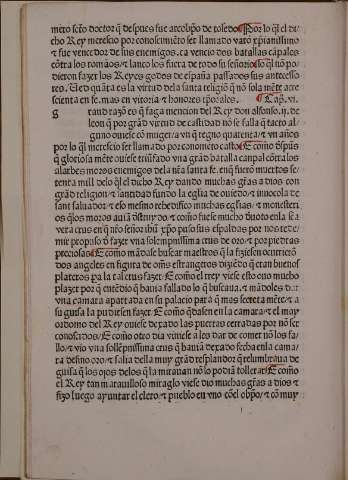 mero scõo doctor q̃ despues fue arçobpo de toledo Por lo q̃l el di
cho Rey meresçio por conosçimiẽto ser llamado varõ xp̃ianissimo
⁊ fue vencedor de sus enemigos. ca vencio dos batallas cãpales
cõtra los romãos/⁊ lanço los fuera de todo su señorio so q̃l nõ po
dieron fazer los Reyes godos de españa passados sus antecesso
res. Ued quãta es la virtud dela santa religiõ q̃ nõ sola mẽte acre
scienta en fe. mas en vitoria ⁊ honores tp̃orales. Cap. vi.
g raud razõ es q̃ faga mencion del Rey don alfonso .ij. de
leon q̃ por grãd virtud de castidad nõ se falla q̃ tacto al
guno ouiese cõ muger/⁊ vn q̃ regno quarenta/⁊ vn años
por lo q̃l meresçio ser llamado por conometo casto E como dspues
q̃ gloriosa mẽte ouiese triũfado vna grãd batalla canpal cõtra los
alarbes moros enemigos dela nr̃a santa fe. en q̃ fuerõ muertos se
tenta mill delo q̃l el dicho Rey dando muchas grãs a dios con
grãd religion ⁊ santidad fundo la eglia de ouiedo/ ⁊ inuocola de
sant saluador/⁊ eso mesmo rehedifico muchas eglias/⁊ monesteri
os q̃los moros auiã distruydo/⁊ como fuese mucho duoto enla sea
vera crus en q̃ nr̃o señor ihũ xp̃o puso sus espaldas por nos rede/
mir propuso d̃ fazer vna solempnissima crus de oro/⁊ por piedras
preciosas E como mãdase buscar maestros q̃ la fiziesen ocurrierõ
dos angeles en figura de omẽs estrangeros diziẽdo q̃ eran buenos
plateros pa la tal crus fazer E como el rey viese esto ouo mucho
plazer por q̃ entẽdio q̃ hauia fallado lo q̃ buscaua/⁊ mãdoles dar
vna camara apartada en su palaçio para q̃ mas secreta mẽte/⁊ a
su guisa la pudiesen fazer E como q̃dasen en la camara/⁊ el may
ordomo del Rey ouiese dexado las puertas cerradas por nõ ser
conoscidos/ E como otro dia viniese a les dar de comer nõ los fa/
llo/⁊ vio vna sollẽpnissima crus q̃ hauiã dexado fecha enla cama
ra de fino oro/⁊ salia della muy grãd resplandor q̃ relumbraua de
guisa q̃ los ojos delos q̃ la mirauan nõ lo podiã tollerar/ E como
el Rey tan marauilloso miraglo viese dio muchas grãs a dios ⁊
fizo luego ayuntar el clero/⁊ pueblo en vno cõel obp̃o/⁊ cõ muy